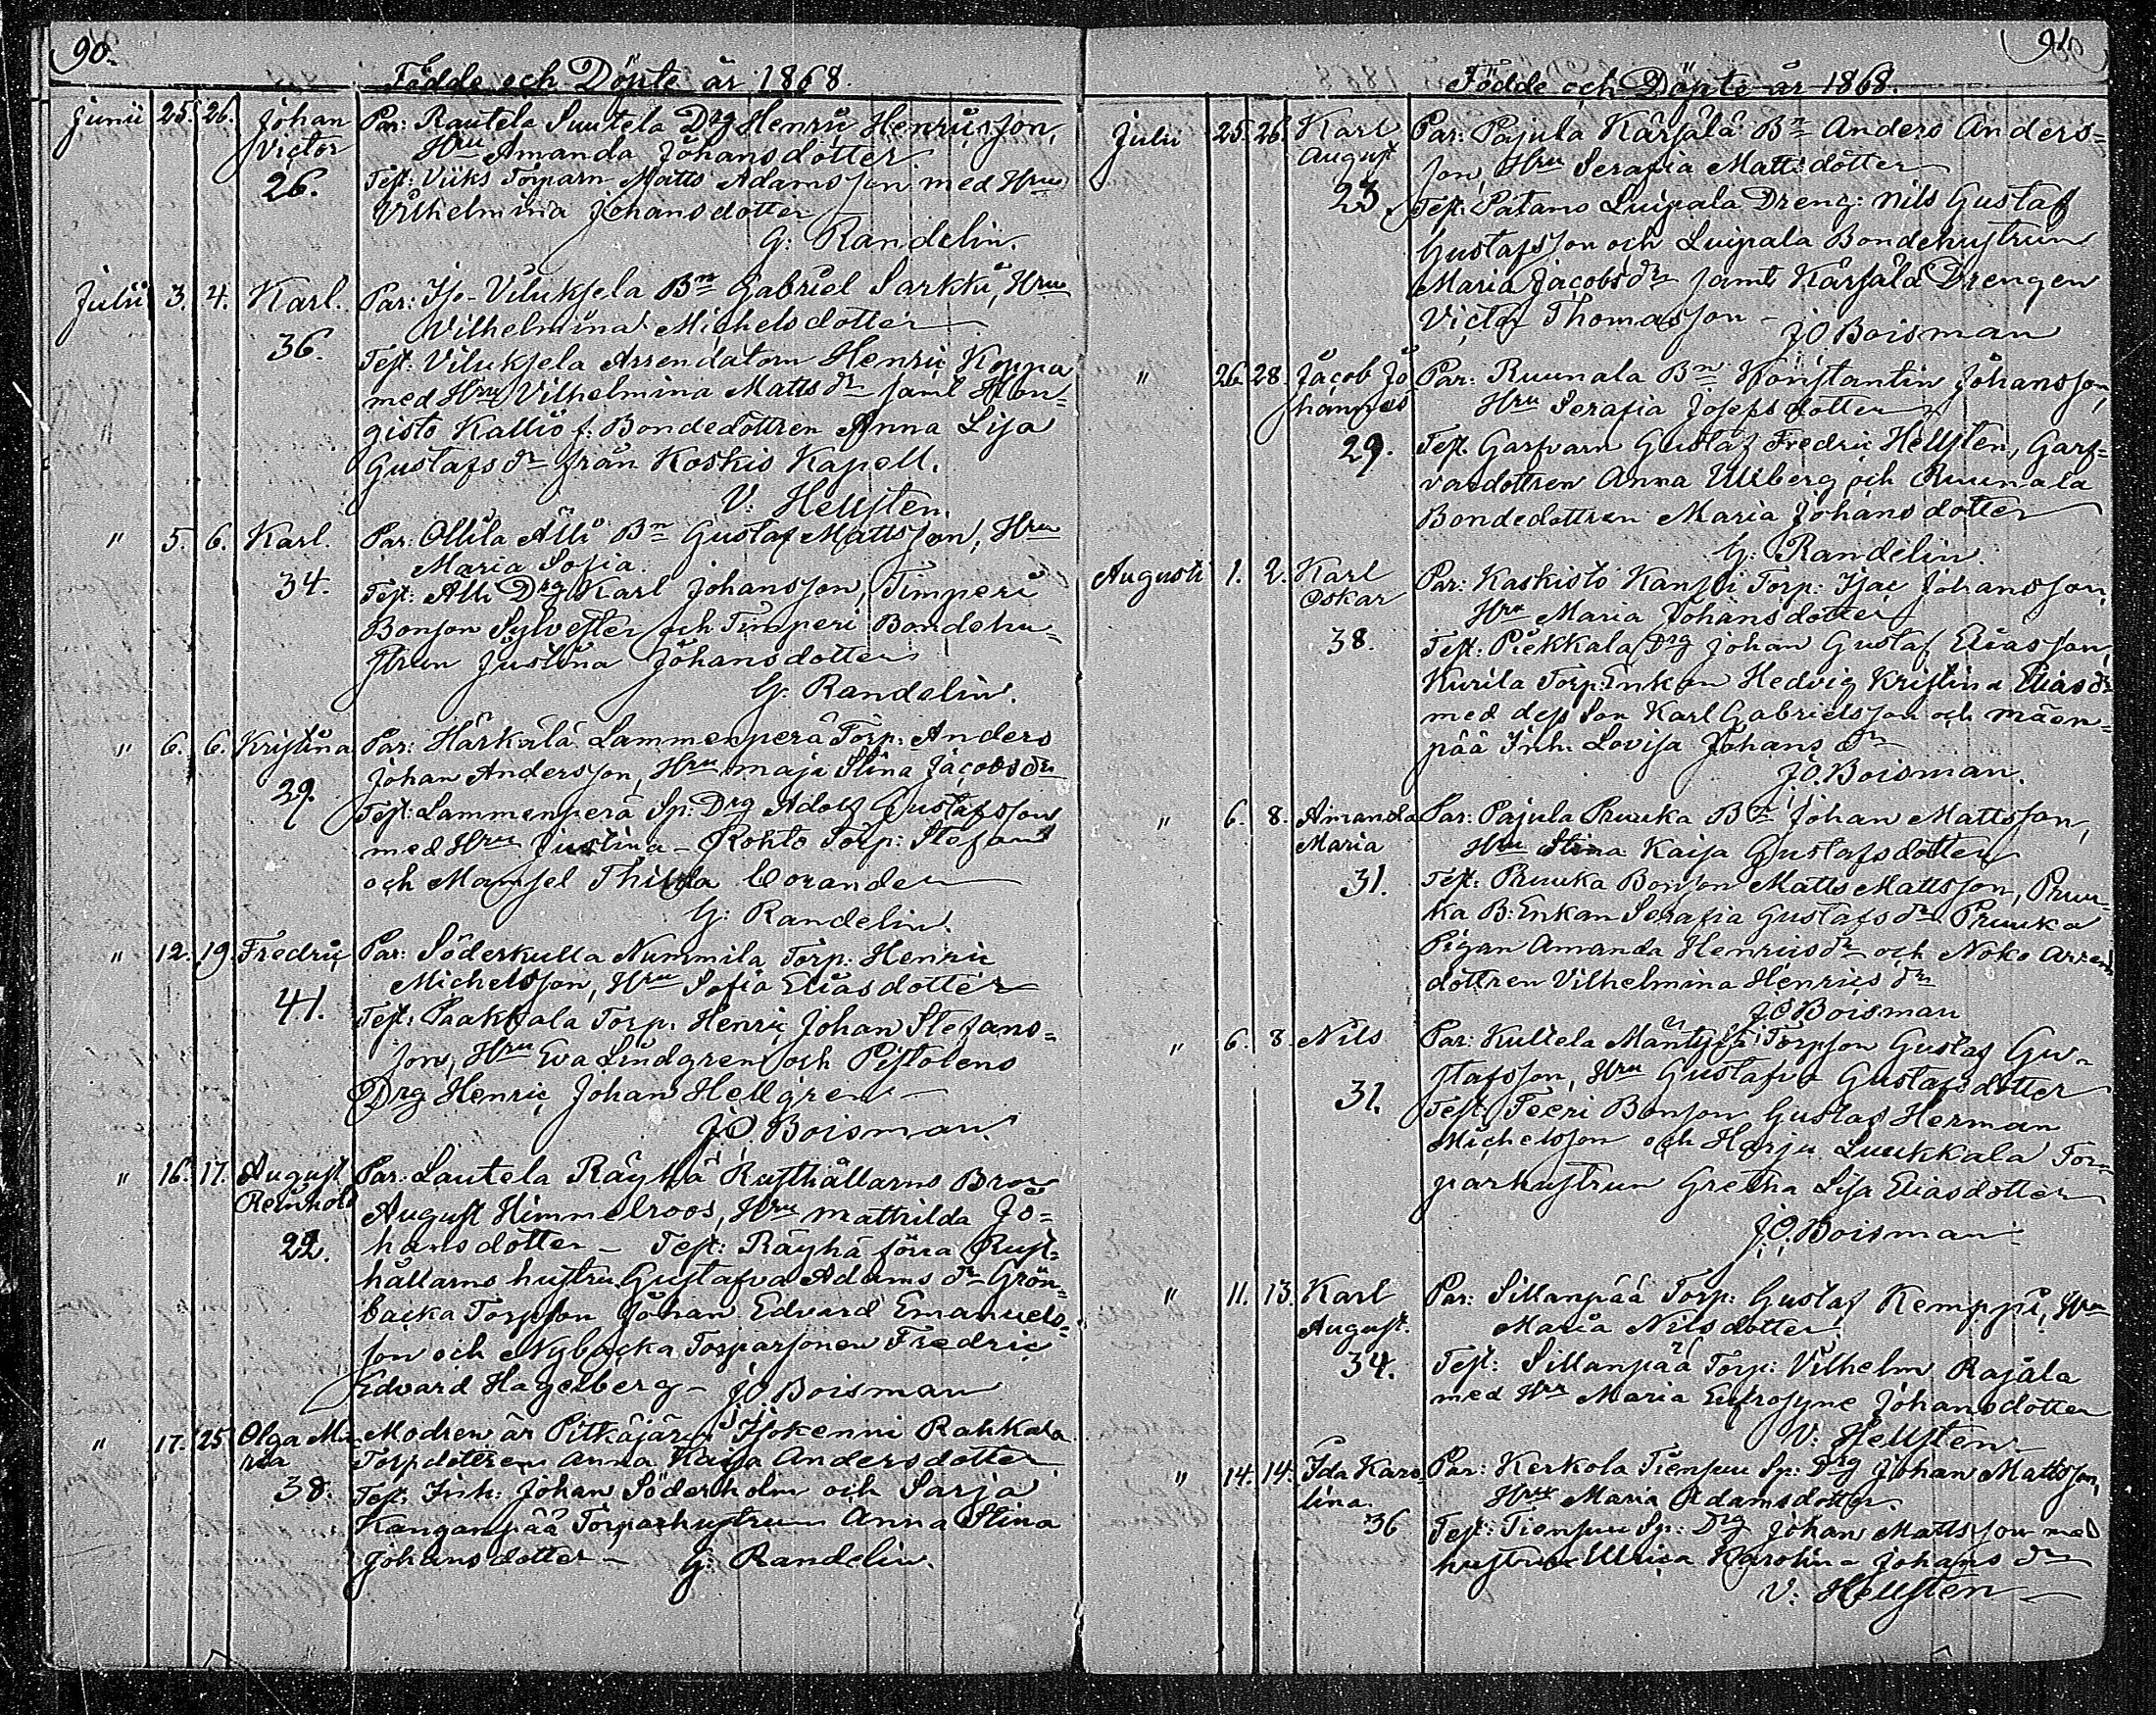 90.
Födde och Döpte år 1868.
Junii 25. 26. Johan Par: Rautela Suutela Drg Henric Henricsson,
Victor Hru Amanda Johansdotter
26. Test: Viiks Torparn Matts Adamsson med Hru
Vilhelmina Johansdotter
G: Randelin.
Julii 3. 4. Karl. Par: Iso-Viluksela Bn Gabriel Sarkki, Hru
Wilhelmina Michelsdotter
36. Test: Viluksela Arrendatorn Henric Koppa
med Hru Vilhelmina Matts dr samt Hon-
gisto Kallio f: Bondedottren Anna Lisa
Gustafs dr från Koskis Kapell.
V: Hellsten.
" 5. 6. Karl. Par: Ollila Alli Bn Gustaf Mattsson, Hru
Maria Sofia.
34. Test: Alli Drg Karl Johansson, Timperi
Bonson Sylvester och Timperi Bondehu-
strun Justina Johansdotter
G: Randelin.
" 6. 6. Kristina Par: Härkälä Lammenperä Torp: Anders
Johan Andersson, Hru Maja Stina Jacobs dr
29. Test: Lammenperä Sp: Drg Adolf Gustafsson
med Hru Justina - Rohto Torp: Stefan
och Mamsel Thilda Corander
G: Randelin.
" 12. 19. Fredric Par: Söderkulla Nummila Torp: Henric
Michelsson, Hru Sofia Eliasdotter
41. Test: Paakkala Torp: Henric Johan Stefans-
son, Hru Eva Lindgren och Pistolens
Drg Henric Johan Hellgren
J.O. Boisman
" 16. 17. August Par: Lautela Räyhä Rusthållarns Bror
Reinhold August Himmelroos, Hru Mathilda Jo-
22. hansdotter - Test: Räyhä förra Rust-
hållarns hustru Gustafva Adams dr Grön-
backa Torpson Johan Edvard Emanuels-
son och Nybacka Torparsonen Fredric
Edvard Hagelberg - J.O Boisman
" 17. 25. Olga Ma- Modren är Pitkäjärvi Isokenni Rahkala
ria Torpdottren Anna Kaisa Andersdotter
38. Test: Inh: Johan Söderholm och Sarja
Kanganpää Torparhustrun Anna Stina
Johansdotter - G: Randelin.
91.
Födde och Döpte år 1868.
Julii 25. 26. Karl Par: Pajula Kärsälä Bn Anders Anders-
August son, Hru Serafia Mattsdotter
23. Test: Patamo Luipala Dreng: Nils Gustaf
Gustafsson och Luipala Bondehustrun
Maria Jacobs dr samt Kärsälä Drengen
Victor Thomasson -
J O Boisman
" 26. 28. Jacob Jo- Par: Ruunala Bn Konstantin Johansson,
hannes Hru Serafia Josefsdotter
29. Test. Garfvarn Gustaf Fredric Hellsten, Garf-
vardottren Anna Ulberg och Ruunala
Bondedottren Maria Johansdotter
G: Randelin.
Augusti 1. 2. Karl Par: Kaskisto Torp: Isac Johansson,
Oskar Hru Maria Johansdotter
38. Test: Piekkala Drg Johan Gustaf Eliasson,
Kurila Torp:Enkan Hedvig Kristina Elias dr
med dess Son Karl Gabrielsson och Mäen-
pää Inh. Lovisa Johans dr
J.O. Boisman.
" 6. 8. Amanda Par: Pajula Pruuka Bn Johan Mattsson,
Maria Hru Stina Kaisa Gustafsdotter
31. Test: Pruuka Bonson Matts Mattsson, Pruu-
ka B: Enkan Serafia Gustafs dr Pruuka
Pigan Amanda Henrics dr och Noko Arrend
dottren Vilhelmina Henrics dr
J O Boisman
" 6. 8. Nils Par: Kultela Mäntylä Torpson Gustaf Gu-
stafsson, Hru Gustafva Gustafsdotter
31. Test: Teeri Bonson Gustaf Herman
Michelsson och Harju Luukkala Tor-
parhustrun Gretha Lisa Eliasdotter
J.O. Boisman
" 11. 13. Karl Par: Sillanpää Torp: Gustaf Kemppi, Hru
August. Maria Nilsdotter.
34. Test: Sillanpää Torp: Vilhelm Rajala
med Hru Maria Eufrosyne Johansdotter
V: Hellsten
" 14. 14. Ida Karo- Par: Kerkola Tiensuu Sp: Drg Johan Mattsson,
lina. Hru Maria Adamsdotter.
36 Test: Tiensuu Sp: Drg Johan Mattsson med
hustrun Ulrica Karolina Johans dr
V: Hellsten